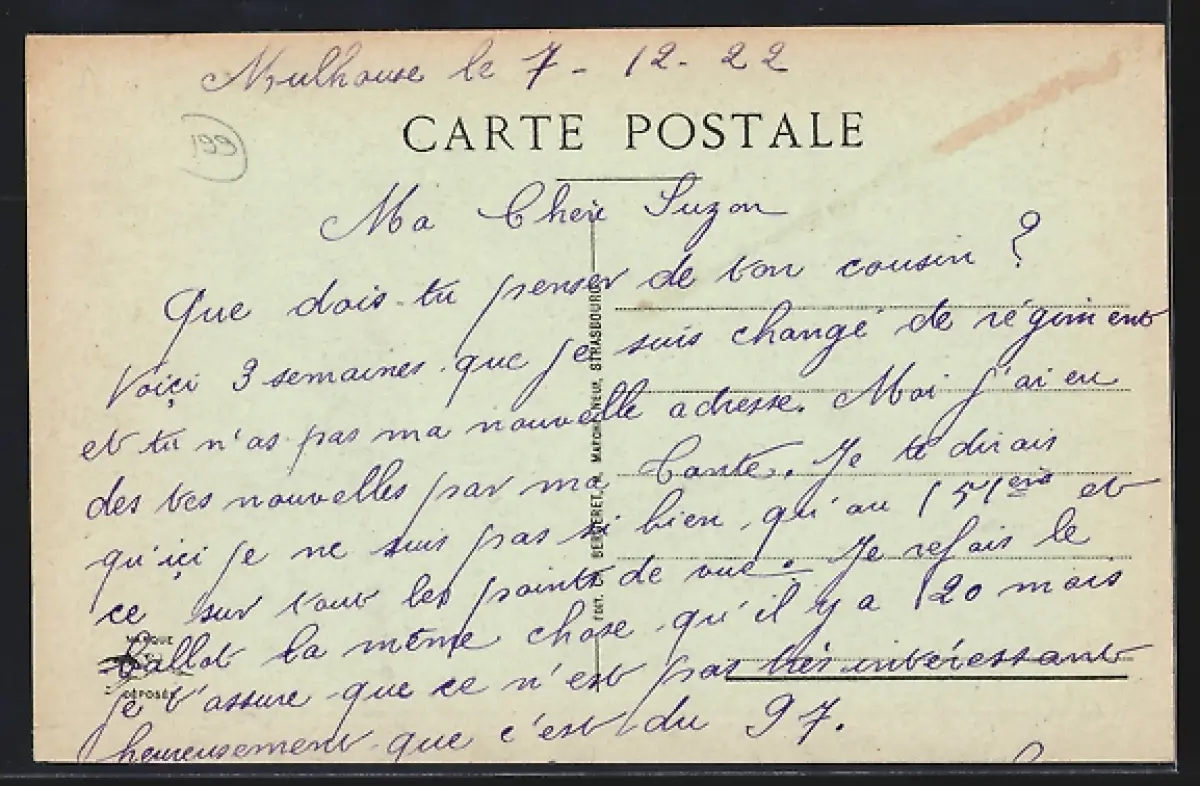 Mulhouse le 7-12-22
CARTE POSTALE
Ma Chere Suzon
Que dois-tu penser de ton cousin ?
Voiçi 3 semaines que je suis changé de régiment
et tu n'as pas ma nouvelle adresse. Moi j'ai eu
des tes nouvelles par ma Tante. Je te dirais
qu'içi je ne suis pas si bien qu'au 151ème et
ce sur tout les points de vue. Je refais le
ballot la même chose qu'il y a 20 mois
je t'assure que ce n'est pas très intéressant
heureusement que c'est du 97.
EDIT. BERGERET, STRASBOURG
MARQUE
DÉPOSÉE